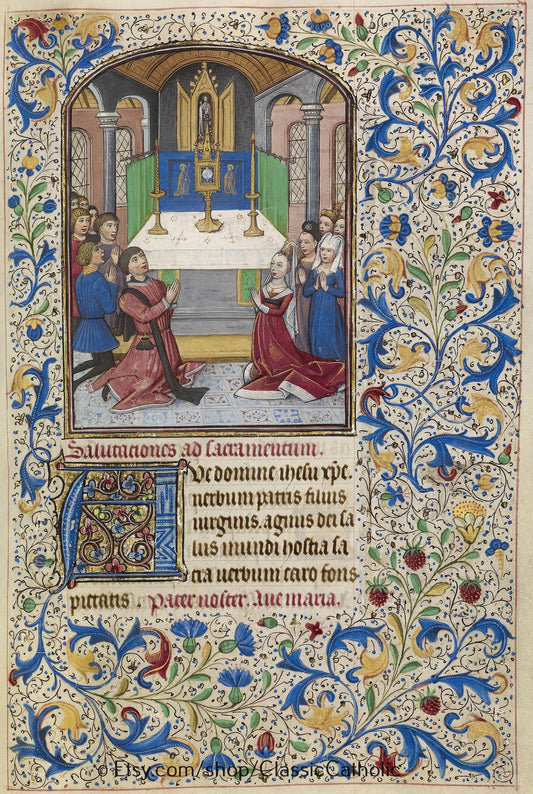 Salutationes ad sacramentum.
Ave domine ihesu xpe
uerbum patris filius
uirginis. agnus dei sa
lus mundi hostia sa
cra uerbum caro fons
pietatis. Pater noster. Aue maria.
©Etsy.com/shop/ClassicCatholic